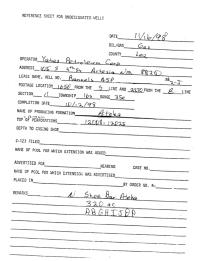 REFERENCE SHEET FOR UNDESIGNATED WELLS
DATE 11/16/98
OIL/GAS Gas
COUNTY Lea
OPERATOR Yates Petroleum Corp
ADDRESS 105 S 4th St Artesia NM 88210
LEASE NAME, WELL NO. Runnels ASP
POSTAGE LOCATION 1650 FROM THE S LINE AND FROM THE E LINE
SECTION 11 TOWNSHIP 16S RANGE 35E
COMPLETION DATE 10/12/98
NAME OF PRODUCING FORMATION Atoka
TOP OF PERFORATIONS
DEPTH TO CASING SHOE
C-123 FILED
NAME OF POOL FOR WHICH EXTENSION WAS ASKED
ADVERTISED FOR HEARING CASE NO.
NAME OF POOL FOR WHICH EXTENSION WAS ADVERTISED
PLACED IN BY ORDER NO. R-
REMARKS N Shoe Bar Atoka
320 ac